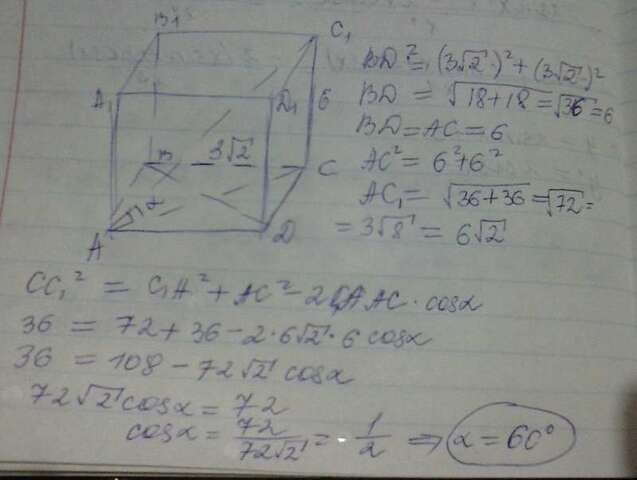 B₁ C₁
A₁ D₁ 6
B 3√2 C
α
A D
BD² = (3√2)² + (3√2)²
BD = √18+18 = √36 = 6
BD = AC = 6
AC² = 6² + 6²
AC₁ = √36+36 = √72 =
= 3√8 = 6√2
CC₁² = C₁A² + AC² - 2C₁A AC · cosα
36 = 72 + 36 - 2·6√2·6 cosα
36 = 108 - 72√2 cosα
72√2 cosα = 72
cosα = 72/72√2 = 1/2 ⇒ α = 60°